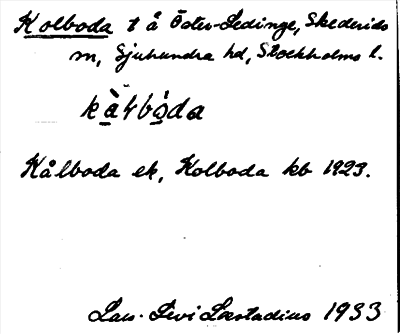 Kolboda t å Öster-Ledinge, Skederids
sn, Sjuhundra hd, Stockholms l.
kàlbòda
Kålboda ek, Kolboda kb 1923.
Lars-Levi Læstadius 1933